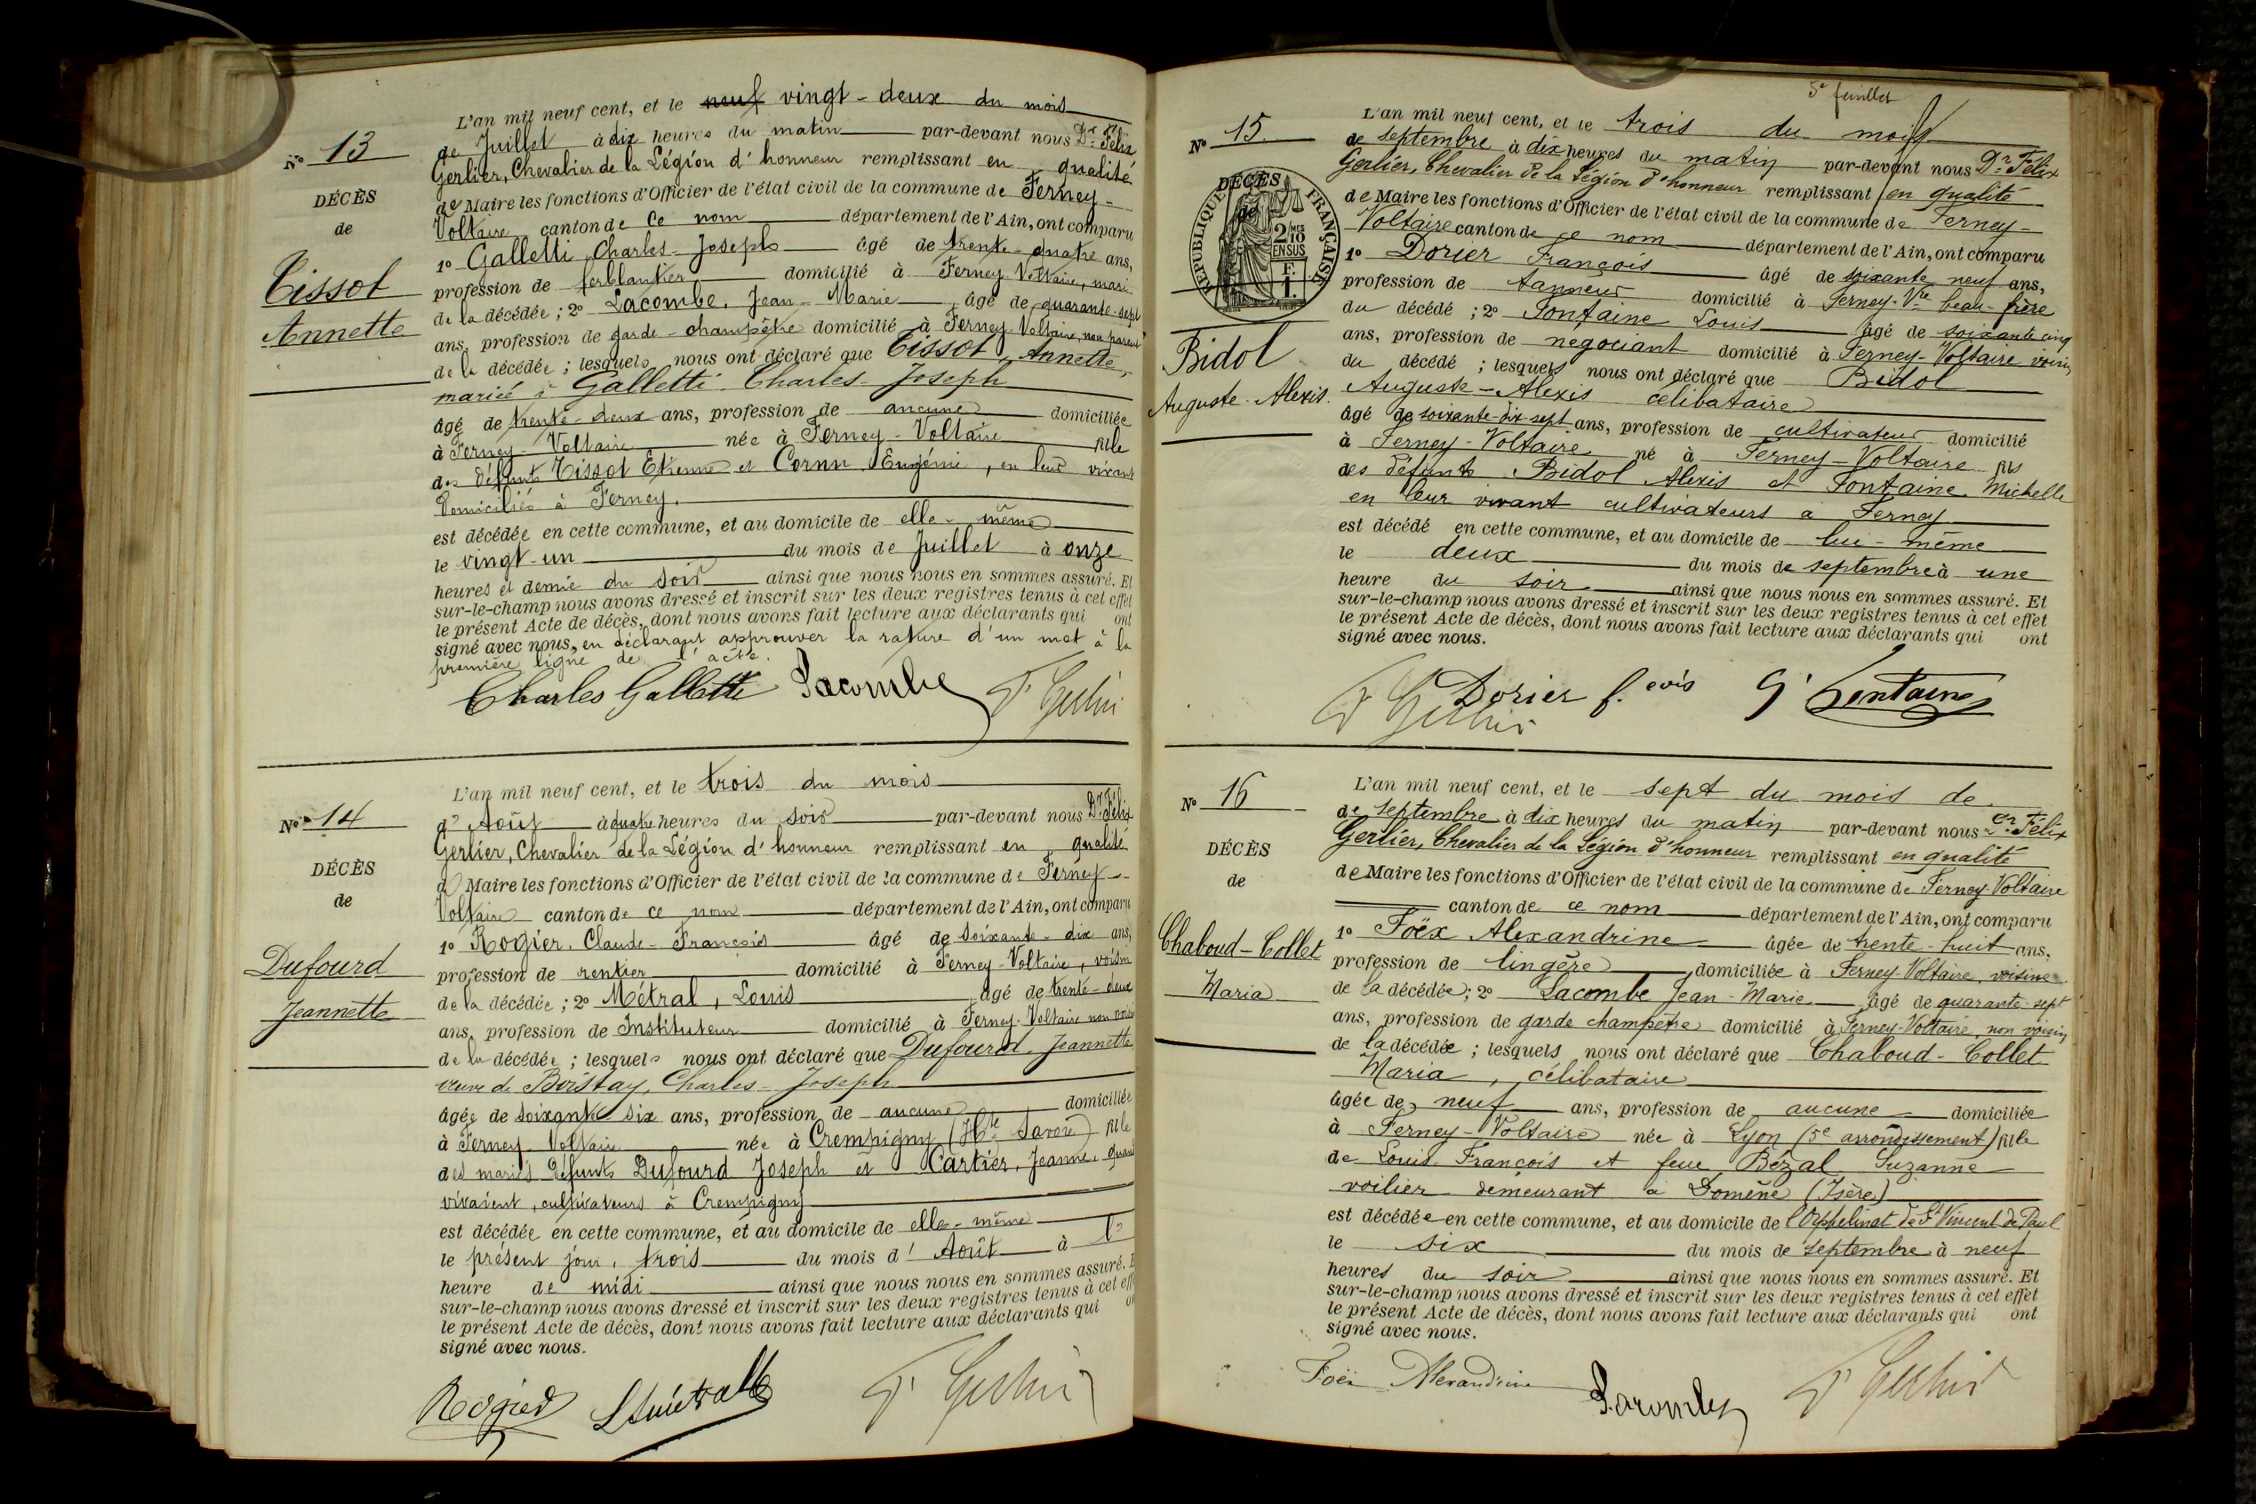 Nº 13
DÉCÈS
de
Tissot
Annette
L'an mil neuf cent, et le neuf vingt-deux du mois
de Juillet à dix heures du matin par-devant nous Dr Félix
Gerlier, Chevalier de la Légion d'honneur remplissant en qualité
de Maire les fonctions d'Officier de l'état civil de la commune de Ferney-
Voltaire canton de ce nom département de l'Ain, ont comparu
1º Galletti Charles-Joseph âgé de trente-quatre ans,
profession de ferblantier domicilié à Ferney Voltaire, mari
de la décédée ; 2º Lacombe, Jean-Marie, âgé de quarante-sept
ans, profession de garde-champêtre domicilié à Ferney Voltaire, non parent
de la décédée ; lesquels nous ont déclaré que Tissot, Annette,
mariée à Galletti Charles-Joseph
âgé de trente-deux ans, profession de aucune domiciliée
à Ferney-Voltaire née à Ferney-Voltaire fille
des défunts Tissot Etienne et Cornu Eugénie, en leur vivant
domiciliés à Ferney.
est décédée en cette commune, et au domicile de elle-même
le vingt-un du mois de Juillet à onze
heures et demie du soir ainsi que nous nous en sommes assuré. Et
sur-le-champ nous avons dressé et inscrit sur les deux registres tenus à cet effet
le présent Acte de décès, dont nous avons fait lecture aux déclarants qui ont
signé avec nous, en déclarant approuver la rature d'un mot à la
première ligne de l'acte.
Charles Galletti Lacombe Dr Gerlier
Nº 14
DÉCÈS
de
Dufourd
Jeannette
L'an mil neuf cent, et le trois du mois
d' Août à quatre heures du soir par-devant nous Dr Félix
Gerlier, Chevalier de la Légion d'honneur remplissant en qualité
de Maire les fonctions d'Officier de l'état civil de la commune de Ferney-
Voltaire canton de ce nom département de l'Ain, ont comparu
1º Rogier, Claude-François âgé de soixante-dix ans,
profession de rentier domicilié à Ferney-Voltaire, voisin
de la décédée ; 2º Métral, Louis âgé de trente-deux
ans, profession de Instituteur domicilié à Ferney-Voltaire non voisin
de la décédée ; lesquels nous ont déclaré que Dufourd Jeannette
veuve de Charles-Joseph
âgée de soixante six ans, profession de aucune domiciliée
à Ferney Voltaire née à Crempigny (Hte Savoie) fille
des mariés défunts Dufourd Joseph et Cartier, Jeanne, quand
vivaient, cultivateurs à Crempigny
est décédée en cette commune, et au domicile de elle-même
le présent jour, trois du mois d' Août à l'
heure de midi ainsi que nous nous en sommes assuré. E
sur-le-champ nous avons dressé et inscrit sur les deux registres tenus à cet eff
le présent Acte de décès, dont nous avons fait lecture aux déclarants qui on
signé avec nous.
Rogier L Métral Dr Gerlier
5e feuillet
Nº 15
DÉCÈS
de
RÉPUBLIQUE FRANÇAISE
2/10 MES
EN SUS
F.
1.
Bidol
Auguste-Alexis.
L'an mil neuf cent, et le trois du mois
de septembre à dix heures du matin par-devant nous Dr Félix
Gerlier, Chevalier de la Légion d'honneur remplissant en qualité
de Maire les fonctions d'Officier de l'état civil de la commune de Ferney-
Voltaire canton de ce nom département de l'Ain, ont comparu
1º Dorier François âgé de soixante neuf ans,
profession de tanneur domicilié à Ferney-Vre beau-frère
du décédé ; 2º Fontaine Louis âgé de soixante cinq
ans, profession de negociant domicilié à Ferney-Voltaire voisin,
du décédé ; lesquels nous ont déclaré que Bidol
Auguste-Alexis célibataire
âgé de soixante-dix-sept ans, profession de cultivateur domicilié
à Ferney-Voltaire né à Ferney-Voltaire fils
des défunts Bidol Alexis et Fontaine Michelle
en leur vivant cultivateurs à Ferney
est décédé en cette commune, et au domicile de lui-même
le deux du mois de septembre à une
heure du soir ainsi que nous nous en sommes assuré. Et
sur-le-champ nous avons dressé et inscrit sur les deux registres tenus à cet effet
le présent Acte de décès, dont nous avons fait lecture aux déclarants qui ont
signé avec nous.
Dr Gerlier Dorier f.çois Fontaine
Nº 16
DÉCÈS
de
Chaboud-Collet
Maria
L'an mil neuf cent, et le sept du mois de
de septembre à dix heures du matin par-devant nous Dr Félix
Gerlier, Chevalier de la Légion d'honneur remplissant en qualité
de Maire les fonctions d'Officier de l'état civil de la commune de Ferney-Voltaire
canton de ce nom département de l'Ain, ont comparu
1º Foëx Alexandrine âgée de trente-huit ans,
profession de lingère domiciliée à Ferney-Voltaire, voisine
de la décédée ; 2º Lacombe Jean-Marie âgé de quarante-sept
ans, profession de garde champêtre domicilié à Ferney-Voltaire, non voisin,
de la décédée ; lesquels nous ont déclaré que Chaboud-Collet
Maria, célibataire
âgée de neuf ans, profession de aucune domiciliée
à Ferney-Voltaire née à Lyon (5e arrondissement) fille
de Louis François et feue Bézal Suzanne
voilier demeurant à Domène (Isère)
est décédée en cette commune, et au domicile de l'Orphelinat de St Vincent de Paul
le six du mois de septembre à neuf
heures du soir ainsi que nous nous en sommes assuré. Et
sur-le-champ nous avons dressé et inscrit sur les deux registres tenus à cet effet
le présent Acte de décès, dont nous avons fait lecture aux déclarants qui ont
signé avec nous.
Foëx Alexandrine Lacombe Dr Gerlier